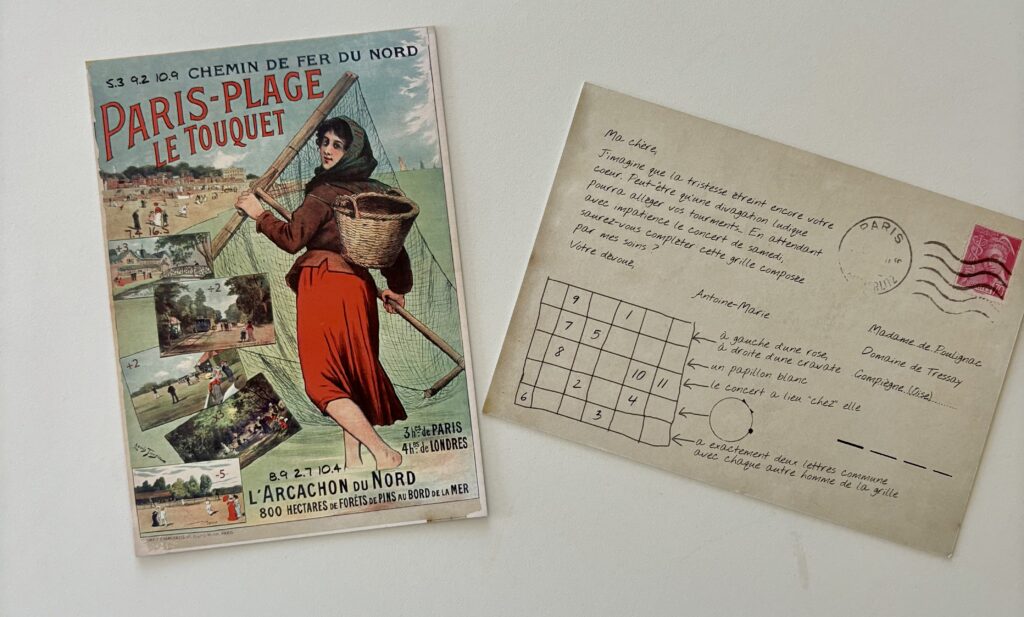 5.3 9.2 10.9 CHEMIN DE FER DU NORD
PARIS-PLAGE
LE TOUQUET
+2
+2
-5
3HES DE PARIS
4HES DE LONDRES
8.9 2.7 10.4
L'ARCACHON DU NORD
800 HECTARES DE FORÊTS DE PINS AU BORD DE LA MER
Ma chère,
J'imagine que la tristesse étreint encore votre
coeur. Peut-être qu'une divagation ludique
pourra alléger vos tourments. En attendant
avec impatience le concert de samedi,
saurez-vous compléter cette grille composée
par mes soins ?
Votre dévoué,
Antoine-Marie
PARIS
Madame de Poulignac
Domaine de Tressay
Compiègne (Oise)
9 1
7 5
8
10 11
2 4
6 3
à gauche d'une rose,
à droite d'une cravate
un papillon blanc
le concert a lieu "chez" elle
a exactement deux lettres commune
avec chaque autre homme de la grille